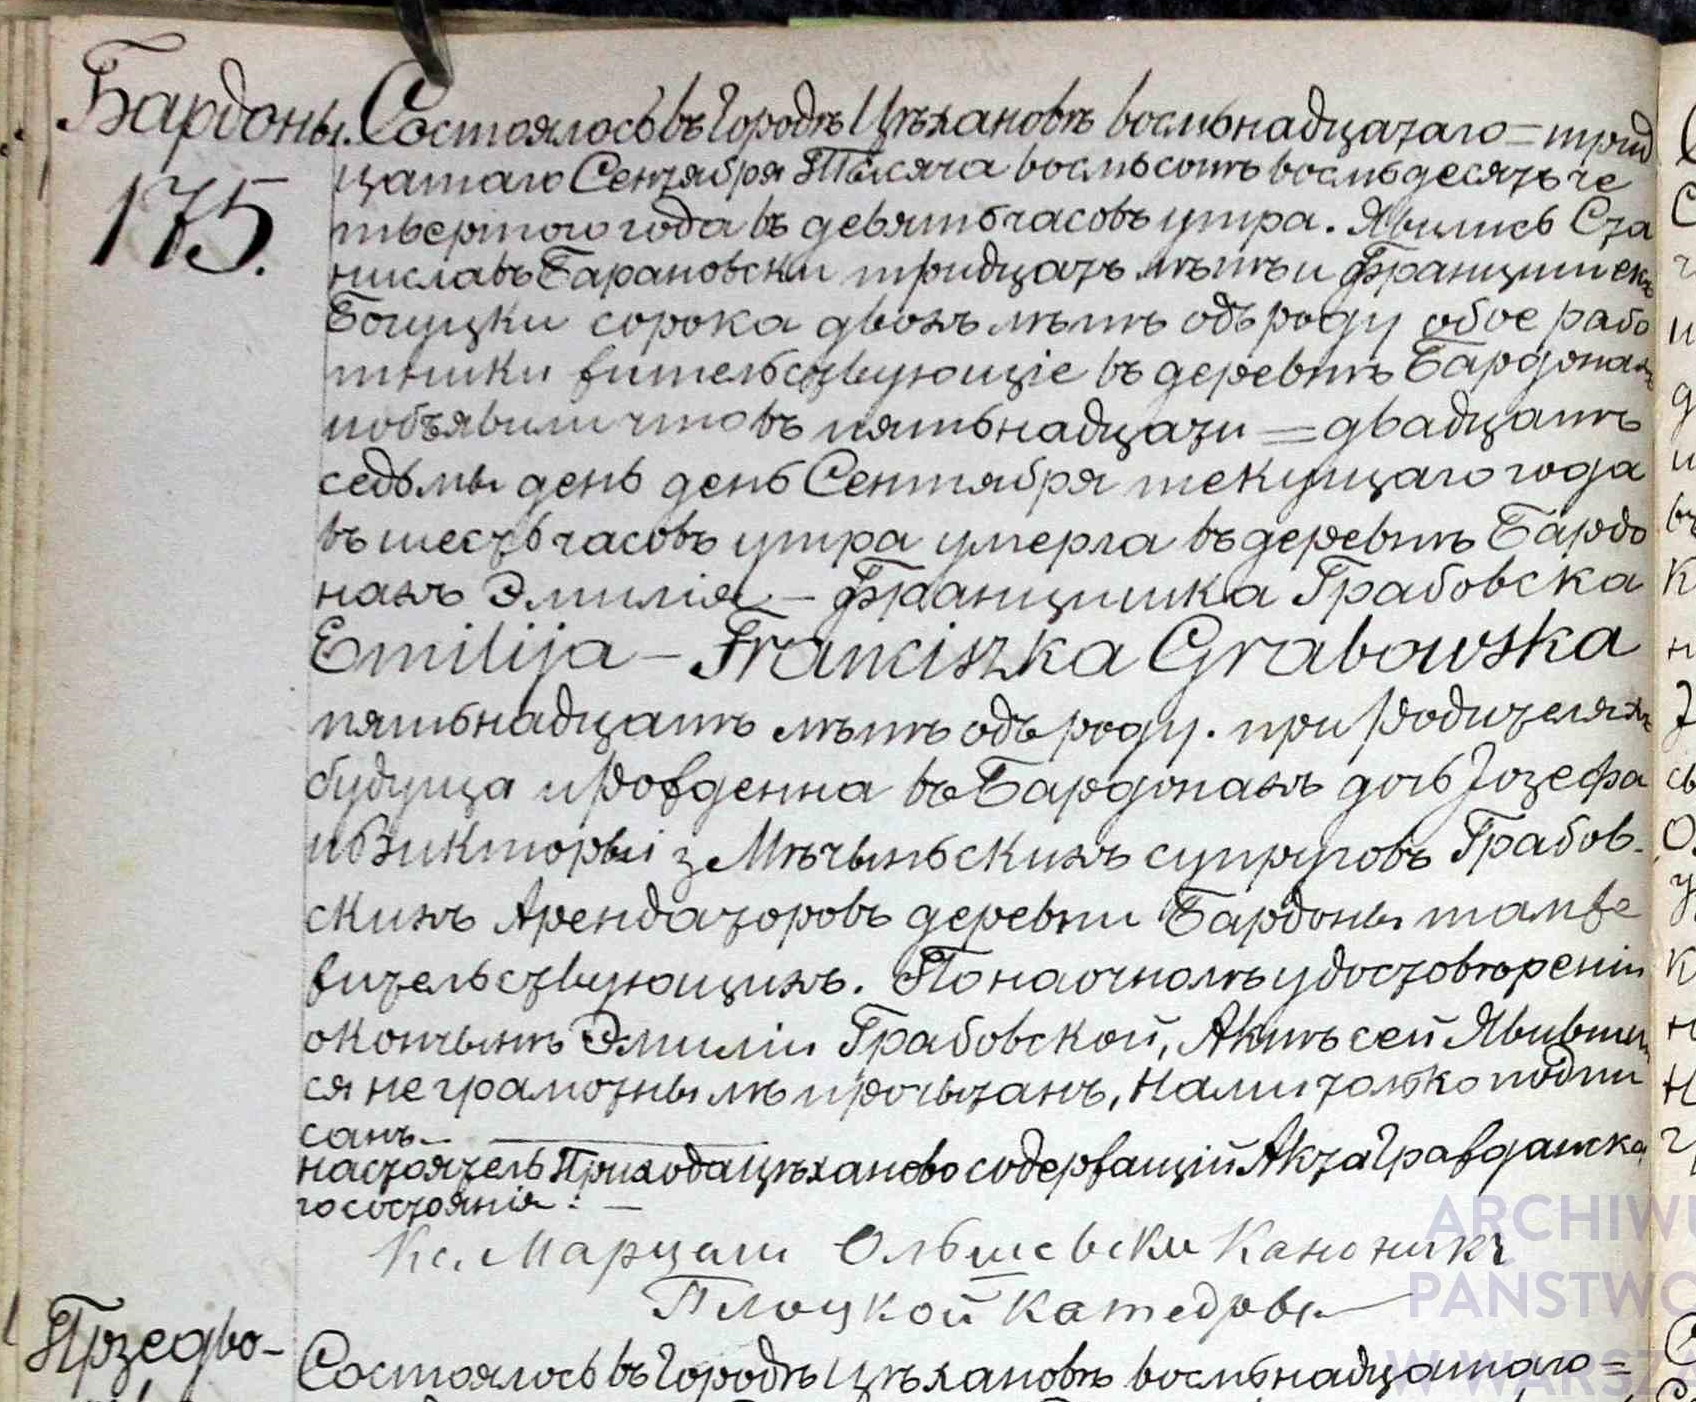 Бардоны. Состоялось въ Городѣ Цѣхановѣ восмьнадцатаго = трид
175. цатаго Сентября Тысяча восмьсотъ восмьдесятъ че
твертого года въ девять часовъ утра. Явились Ста
ниславъ Барановски тридцать лѣтъ и Францишекъ
Богуцки сорока двохъ лѣтъ одъ роду обое рабо
тники жительствующіе въ деревнѣ Бардонахъ
и объявили что въ пятьнадцати = двадцатъ
седьмы день день Сентября текущаго года
въ шесть часовъ утра умерла въ деревнѣ Бардо
нахъ Эмилія - Францишка Грабовска
Emilija - Franciszka Grabowska
пятьнадцать лѣтъ одъ роду. при родителяхъ
будуща и рожденна въ Бардонахъ дочь Іозефа
и Викторыи з супруговъ Грабов-
скихъ Арендаторовъ деревни Бардоны тамже
жительствующихъ. По наочномъ удостовѣреніи
о кончынѣ Эмиліи Грабовской, Актъ сей Явившим
ся неграмотнымъ прочытанъ, Нами только подпи
санъ. —
настоятель Прихода Цѣханово содержащій Акта Гражданска
го состоянія: —
Кс. Марцели Ольшевски Каноникъ
Плоцкой Катедры
Прзедво- Состоялось въ Городѣ Цѣхановѣ восмьнадцатаго =
ARCHIWU
PAŃSTWO
W WARSZA